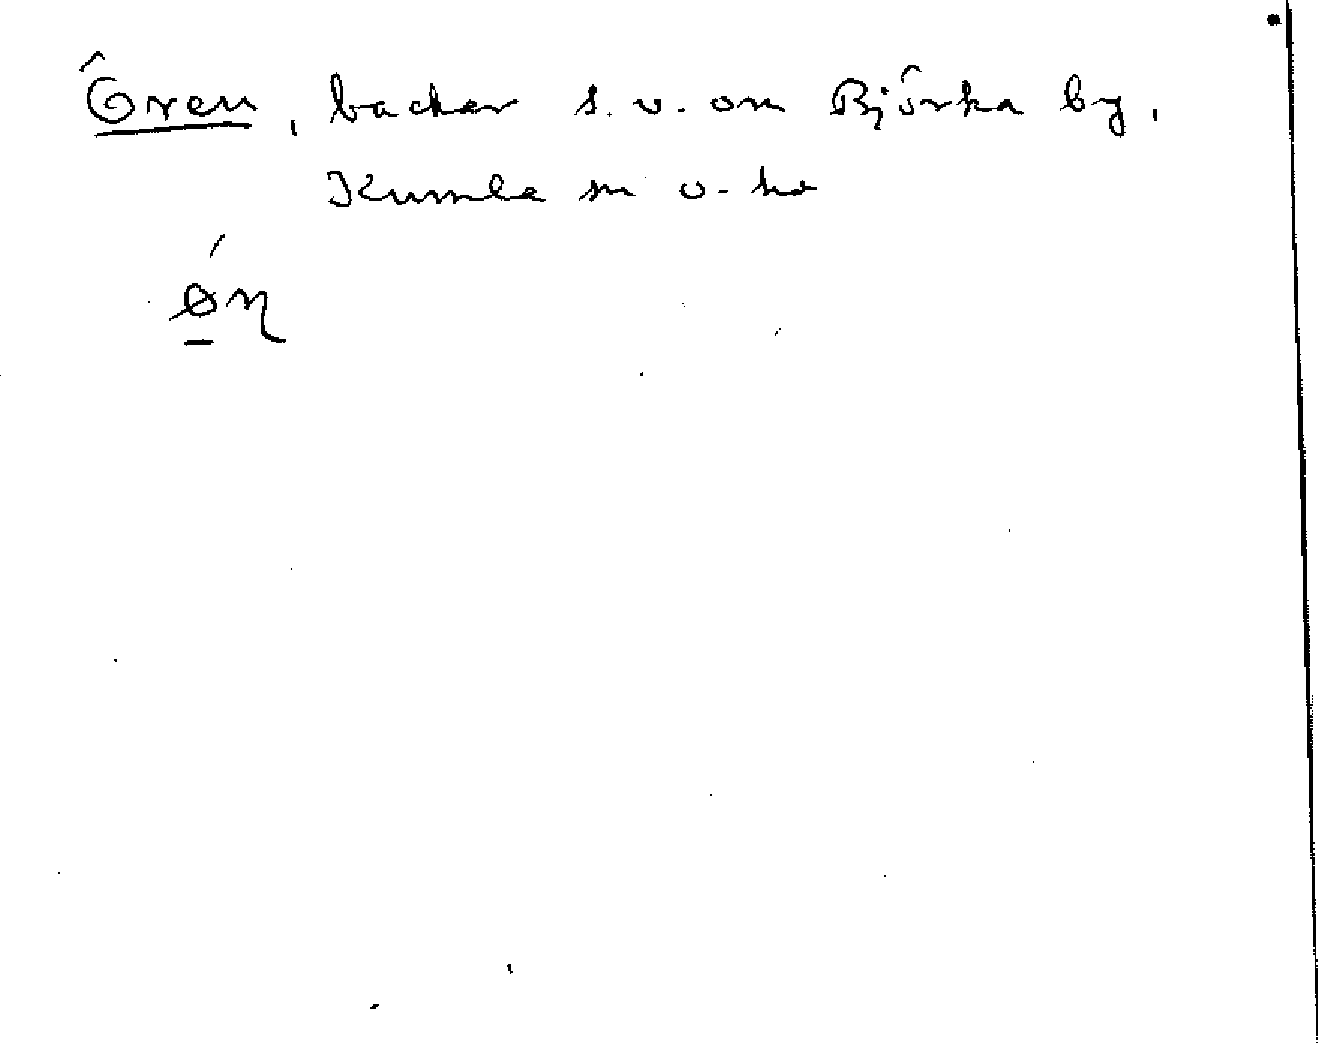 Ören, backar s.v. om Björka by,
Kumla sn V-hd